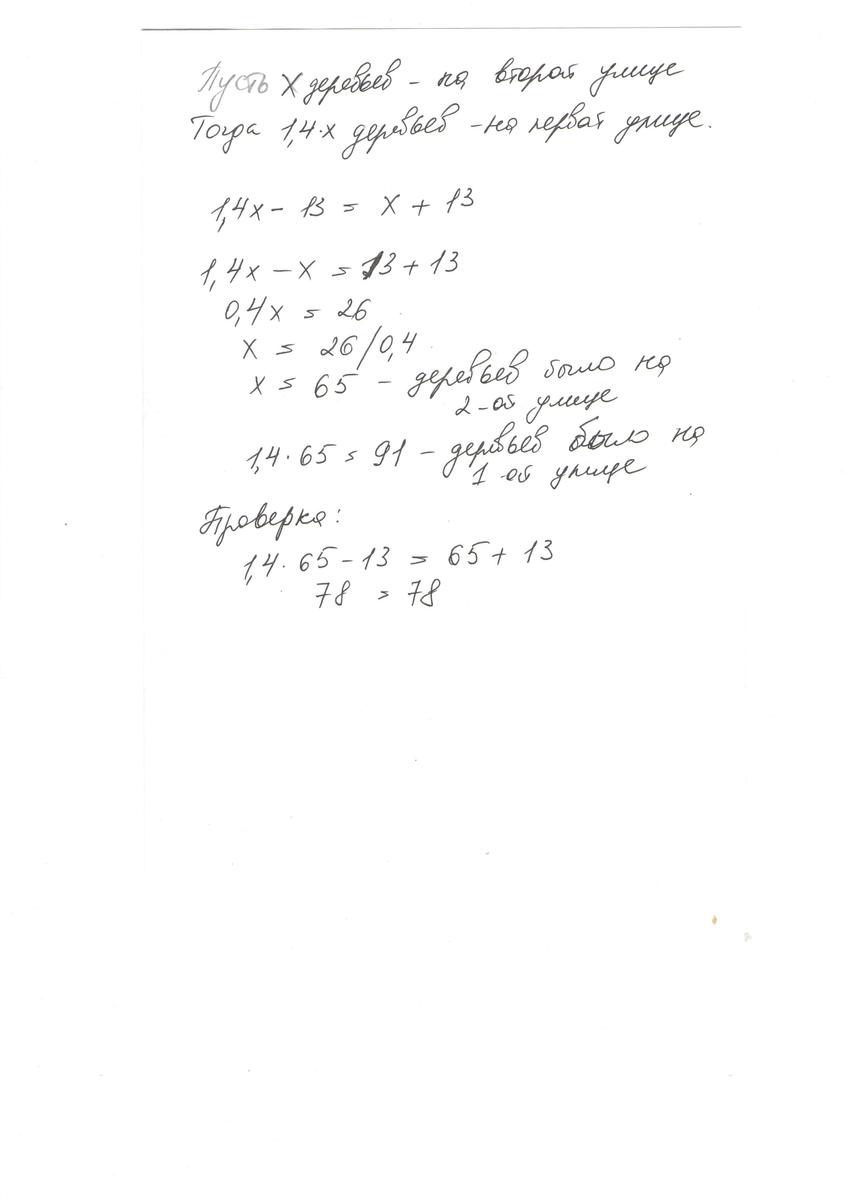 Пусть X деревьев - на второй улице
Тогда 1,4·x деревьев - на первой улице.
1,4x - 13 = X + 13
1,4x - x = 13 + 13
0,4x = 26
x = 26/0,4
x = 65 - деревьев было на
2-ой улице
1,4·65 = 91 - деревьев было на
1-ой улице
Проверка:
1,4·65 - 13 = 65 + 13
78 = 78